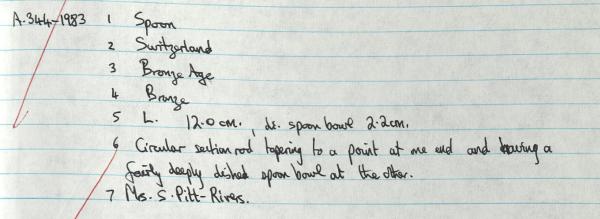 A.344-1983 1 Spoon
2 Switzerland
3 Bronze Age
4 Bronze
5 L. 12.0cm., di. spoon bowl 2.2cm.
6 Circular section rod tapering to a point at one end and having a
fairly deeply dished spoon bowl at the other.
7 Mrs. S. Pitt-Rivers.